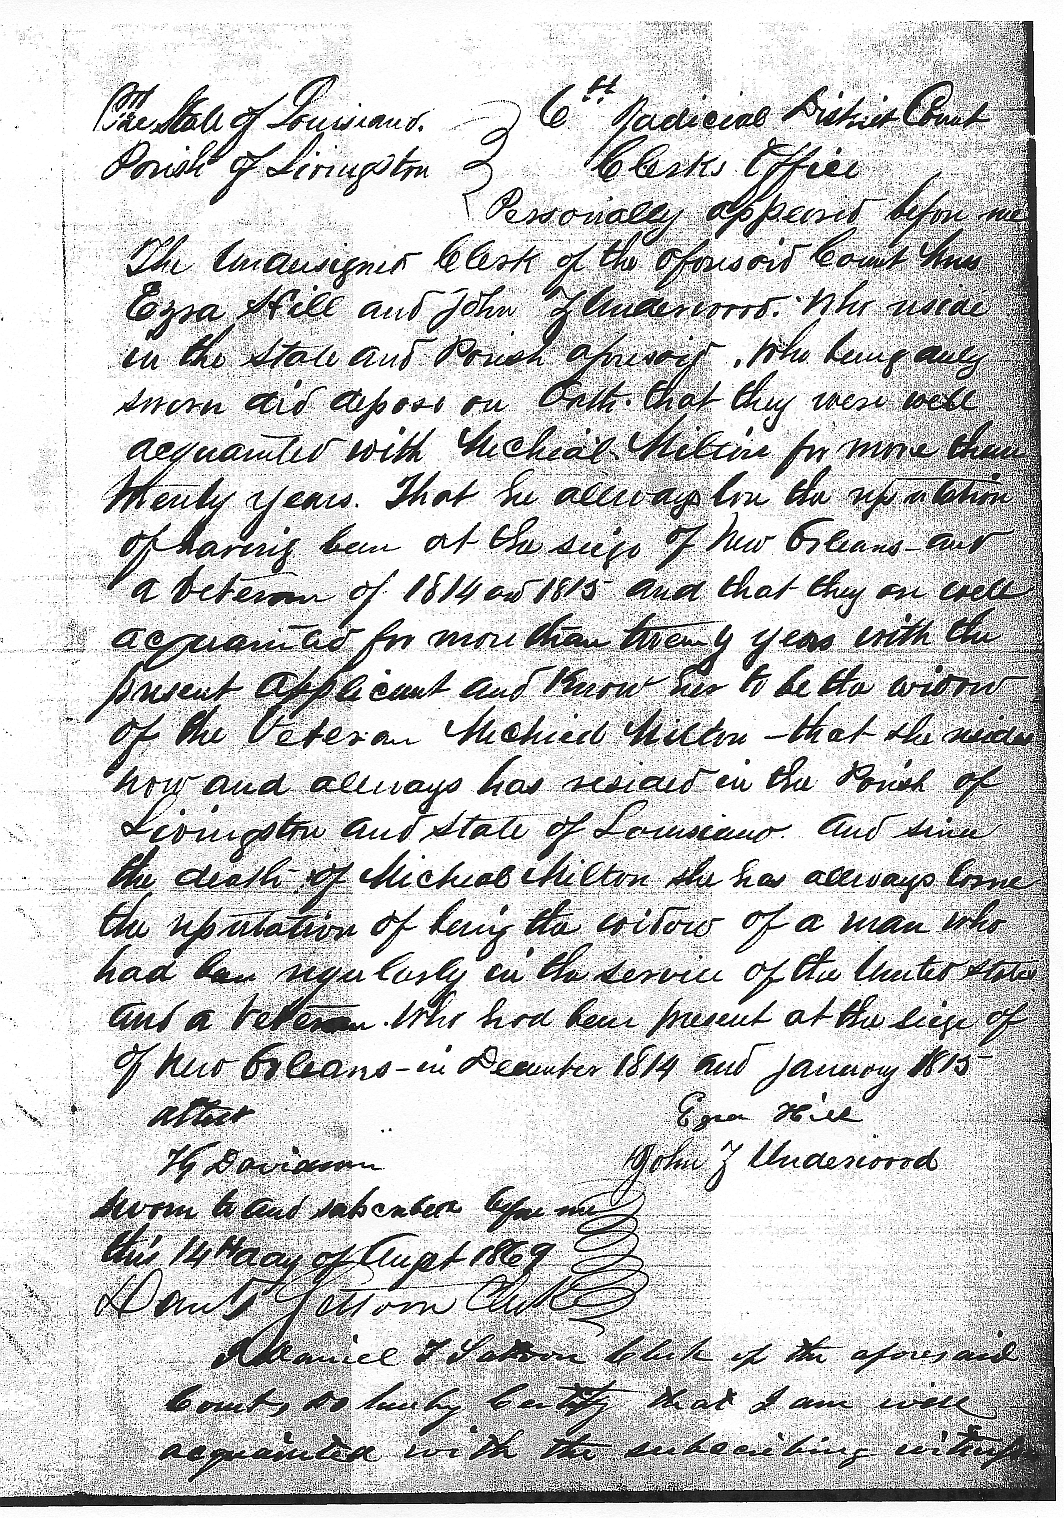 The State of Louisiana. 6th Judicial District Court
Parish of Livingston Clerks Office
Personally appeared before me
The Undersigned Clerk of the aforesaid Court
Ezra Hill and John Z Underwood. Who reside
in the State and Parish aforesaid, Who being duly
sworn did depose on Oath. that they were well
acquainted with Micheal Milton for more than
twenty years. That he allways bore the reputation
of having been at the siege of New Orleans - and
a veteran of 1814 and 1815 and that they are well
acquainted for more than twenty years with the
present applicant and Know her to be the widow
of the Veteran Micheal Milton - that she resides
now and allways has resided in the Parish of
Livingston and State of Louisiana and since
the death of Micheal Milton she has allways borne
the reputation of being the widow of a man who
had been regularly in the service of the United States
and a Veteran. Who had been present at the siege of
of New Orleans - in December 1814 and January 1815
attest Ezra Hill
Davidson John Z Underwood
sworn to and subscribed before me
this 14th day of Augst 1869
Clerk
I Daniel Clerk of the aforesaid
Court, do hereby Certify that I am well
acquainted with the subscribing